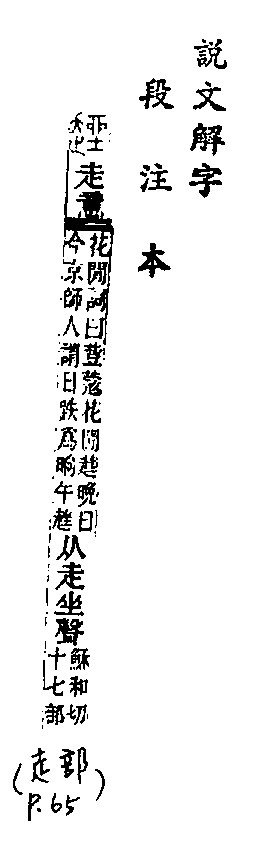 説文解字
段注本
走意
花間詞曰荳蔻花間趖晚日
今京師人謂日跌爲晌午趖
从走坐聲
穌和切
十七部
(走部
P.65)